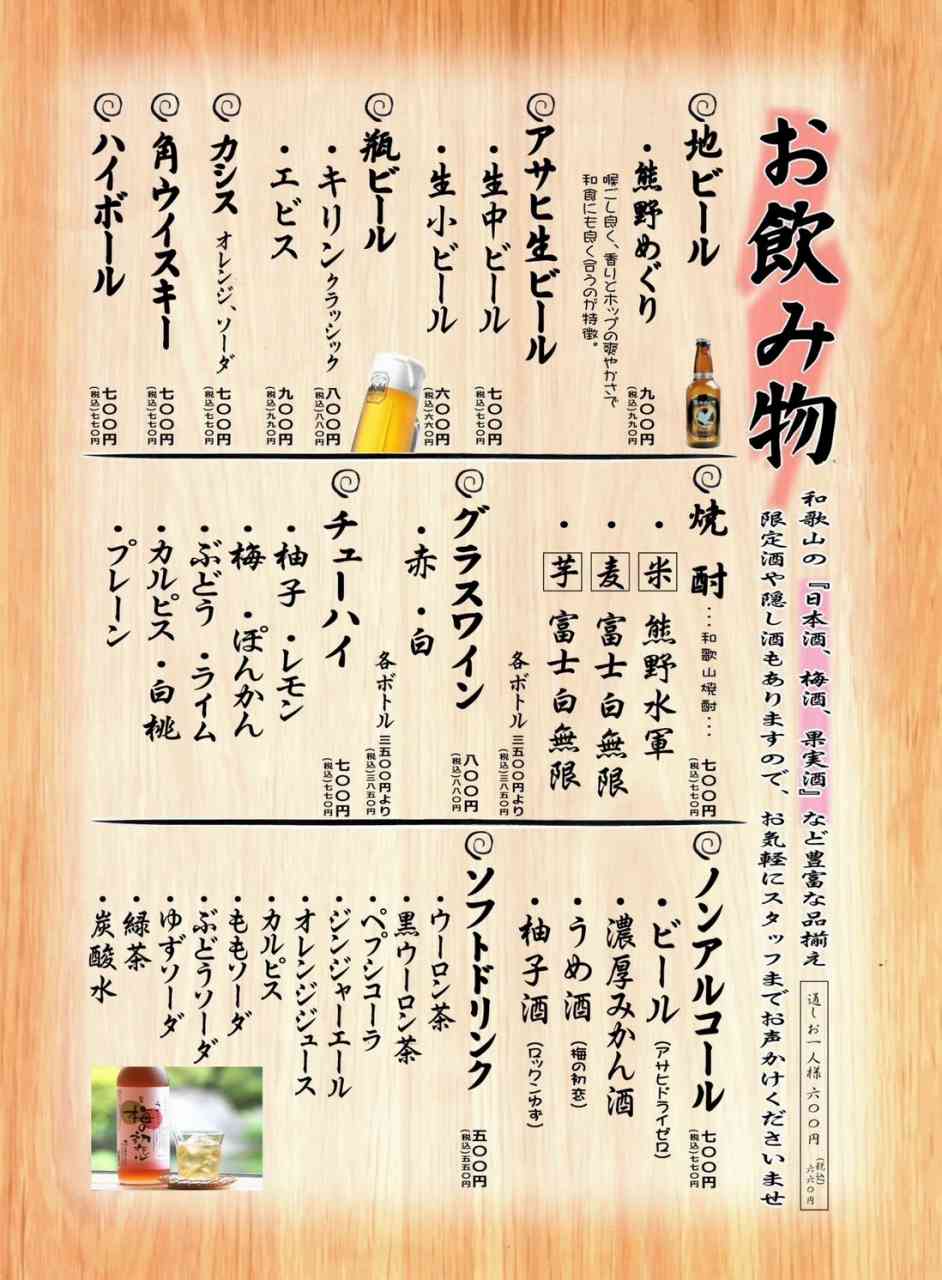 お飲み物
和歌山の『日本酒、梅酒、果実酒』など豊富な品揃え
限定酒や隠し酒もありますので、お気軽にスタッフまでお声かけくださいませ
通しお一人様 六〇〇円 (税込)六六〇円
地ビール
・熊野めぐり 九〇〇円 (税込)九九〇円
喉ごし良く、香りとホップの爽やかさで
和食にも良く合うのが特徴。
アサヒ生ビール
・生中ビール 七〇〇円 (税込)七七〇円
・生小ビール 六〇〇円 (税込)六六〇円
瓶ビール
・キリンクラッシック 八〇〇円 (税込)八八〇円
・エビス 九〇〇円 (税込)九九〇円
カシス オレンジ、ソーダ 七〇〇円 (税込)七七〇円
角ウイスキー 七〇〇円 (税込)七七〇円
ハイボール 七〇〇円 (税込)七七〇円
焼酎…和歌山焼酎… 七〇〇円 (税込)七七〇円
・米 熊野水軍
・麦 富士白無限
・芋 富士白無限
各ボトル 三五〇〇円より (税込)三八五〇円
グラスワイン 八〇〇円 (税込)八八〇円
・赤・白
各ボトル 三五〇〇円より (税込)三八五〇円
チューハイ 七〇〇円 (税込)七七〇円
・柚子・レモン
・梅・ぽんかん
・ぶどう・ライム
・カルピス・白桃
・プレーン
ノンアルコール 七〇〇円 (税込)七七〇円
・ビール(アサヒドライゼロ)
・濃厚みかん酒
・うめ酒(梅の初恋)
・柚子酒(ロックンゆず)
ソフトドリンク 五〇〇円 (税込)五五〇円
・ウーロン茶
・黒ウーロン茶
・ペプシコーラ
・ジンジャーエール
・オレンジジュース
・カルピス
・ももソーダ
・ぶどうソーダ
・ゆずソーダ
・緑茶
・炭酸水
梅の初恋